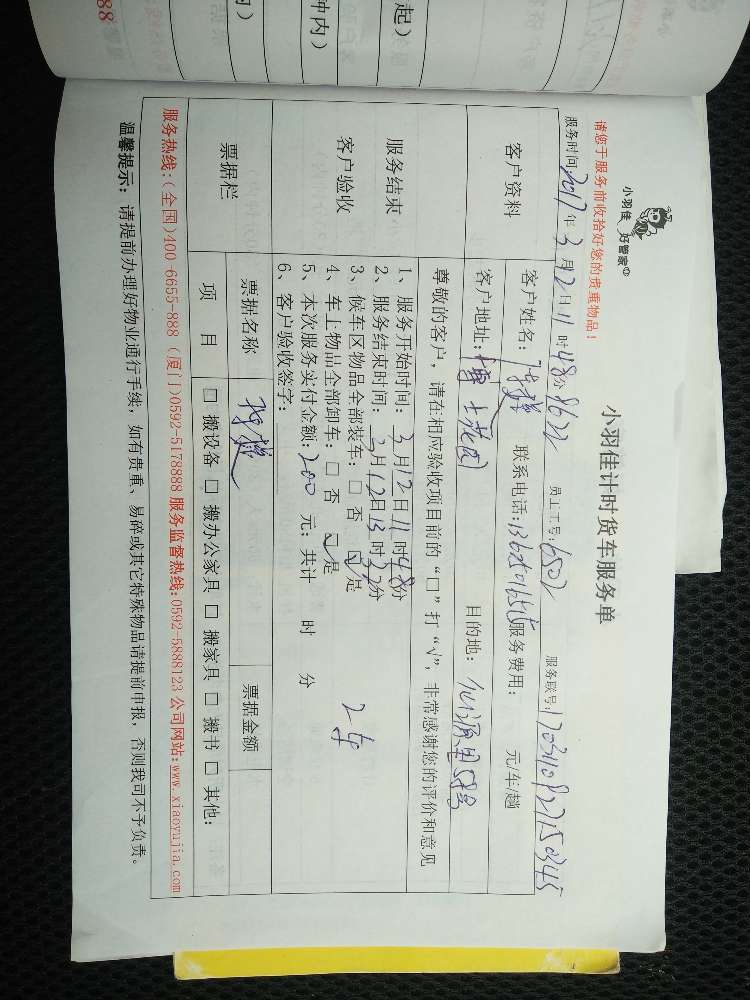 小羽佳 好管家
小羽佳计时货车服务单
请您于服务前收拾好您的贵重物品！
服务时间：2017年3月12日11时48分 8622 员工工号：6502 服务联号：
客户资料
客户姓名： 联系电话： 服务费用： 元/车/趟
客户地址：博士花园 目的地：
尊敬的客户，请在相应验收项目前的“□”打“√”，非常感谢您的评价和意见
服务结束
客户验收
1、服务开始时间：3月12日11时48分
2、服务结束时间：3月12日13时32分
3、候车区物品全部装车：□ 否 ☑ 是
4、车上物品全部卸车：□ 否 ☑ 是
5、本次服务实付金额：200 元；共计 时 分
6、客户验收签字：
票据栏
票据名称 票据金额
项 目 □ 搬设备 □ 搬办公家具 □ 搬家具 □ 搬书 □ 其他：
服务热线：(全国)400-6655-888 (厦门)0592-5178888 服务监督热线：0592-5888123 公司网站：www.xiaoyujia.com
温馨提示：请提前办理好物业通行手续，如有贵重、易碎或其它特殊物品请提前申报，否则我司不予负责。
起）
钟内）